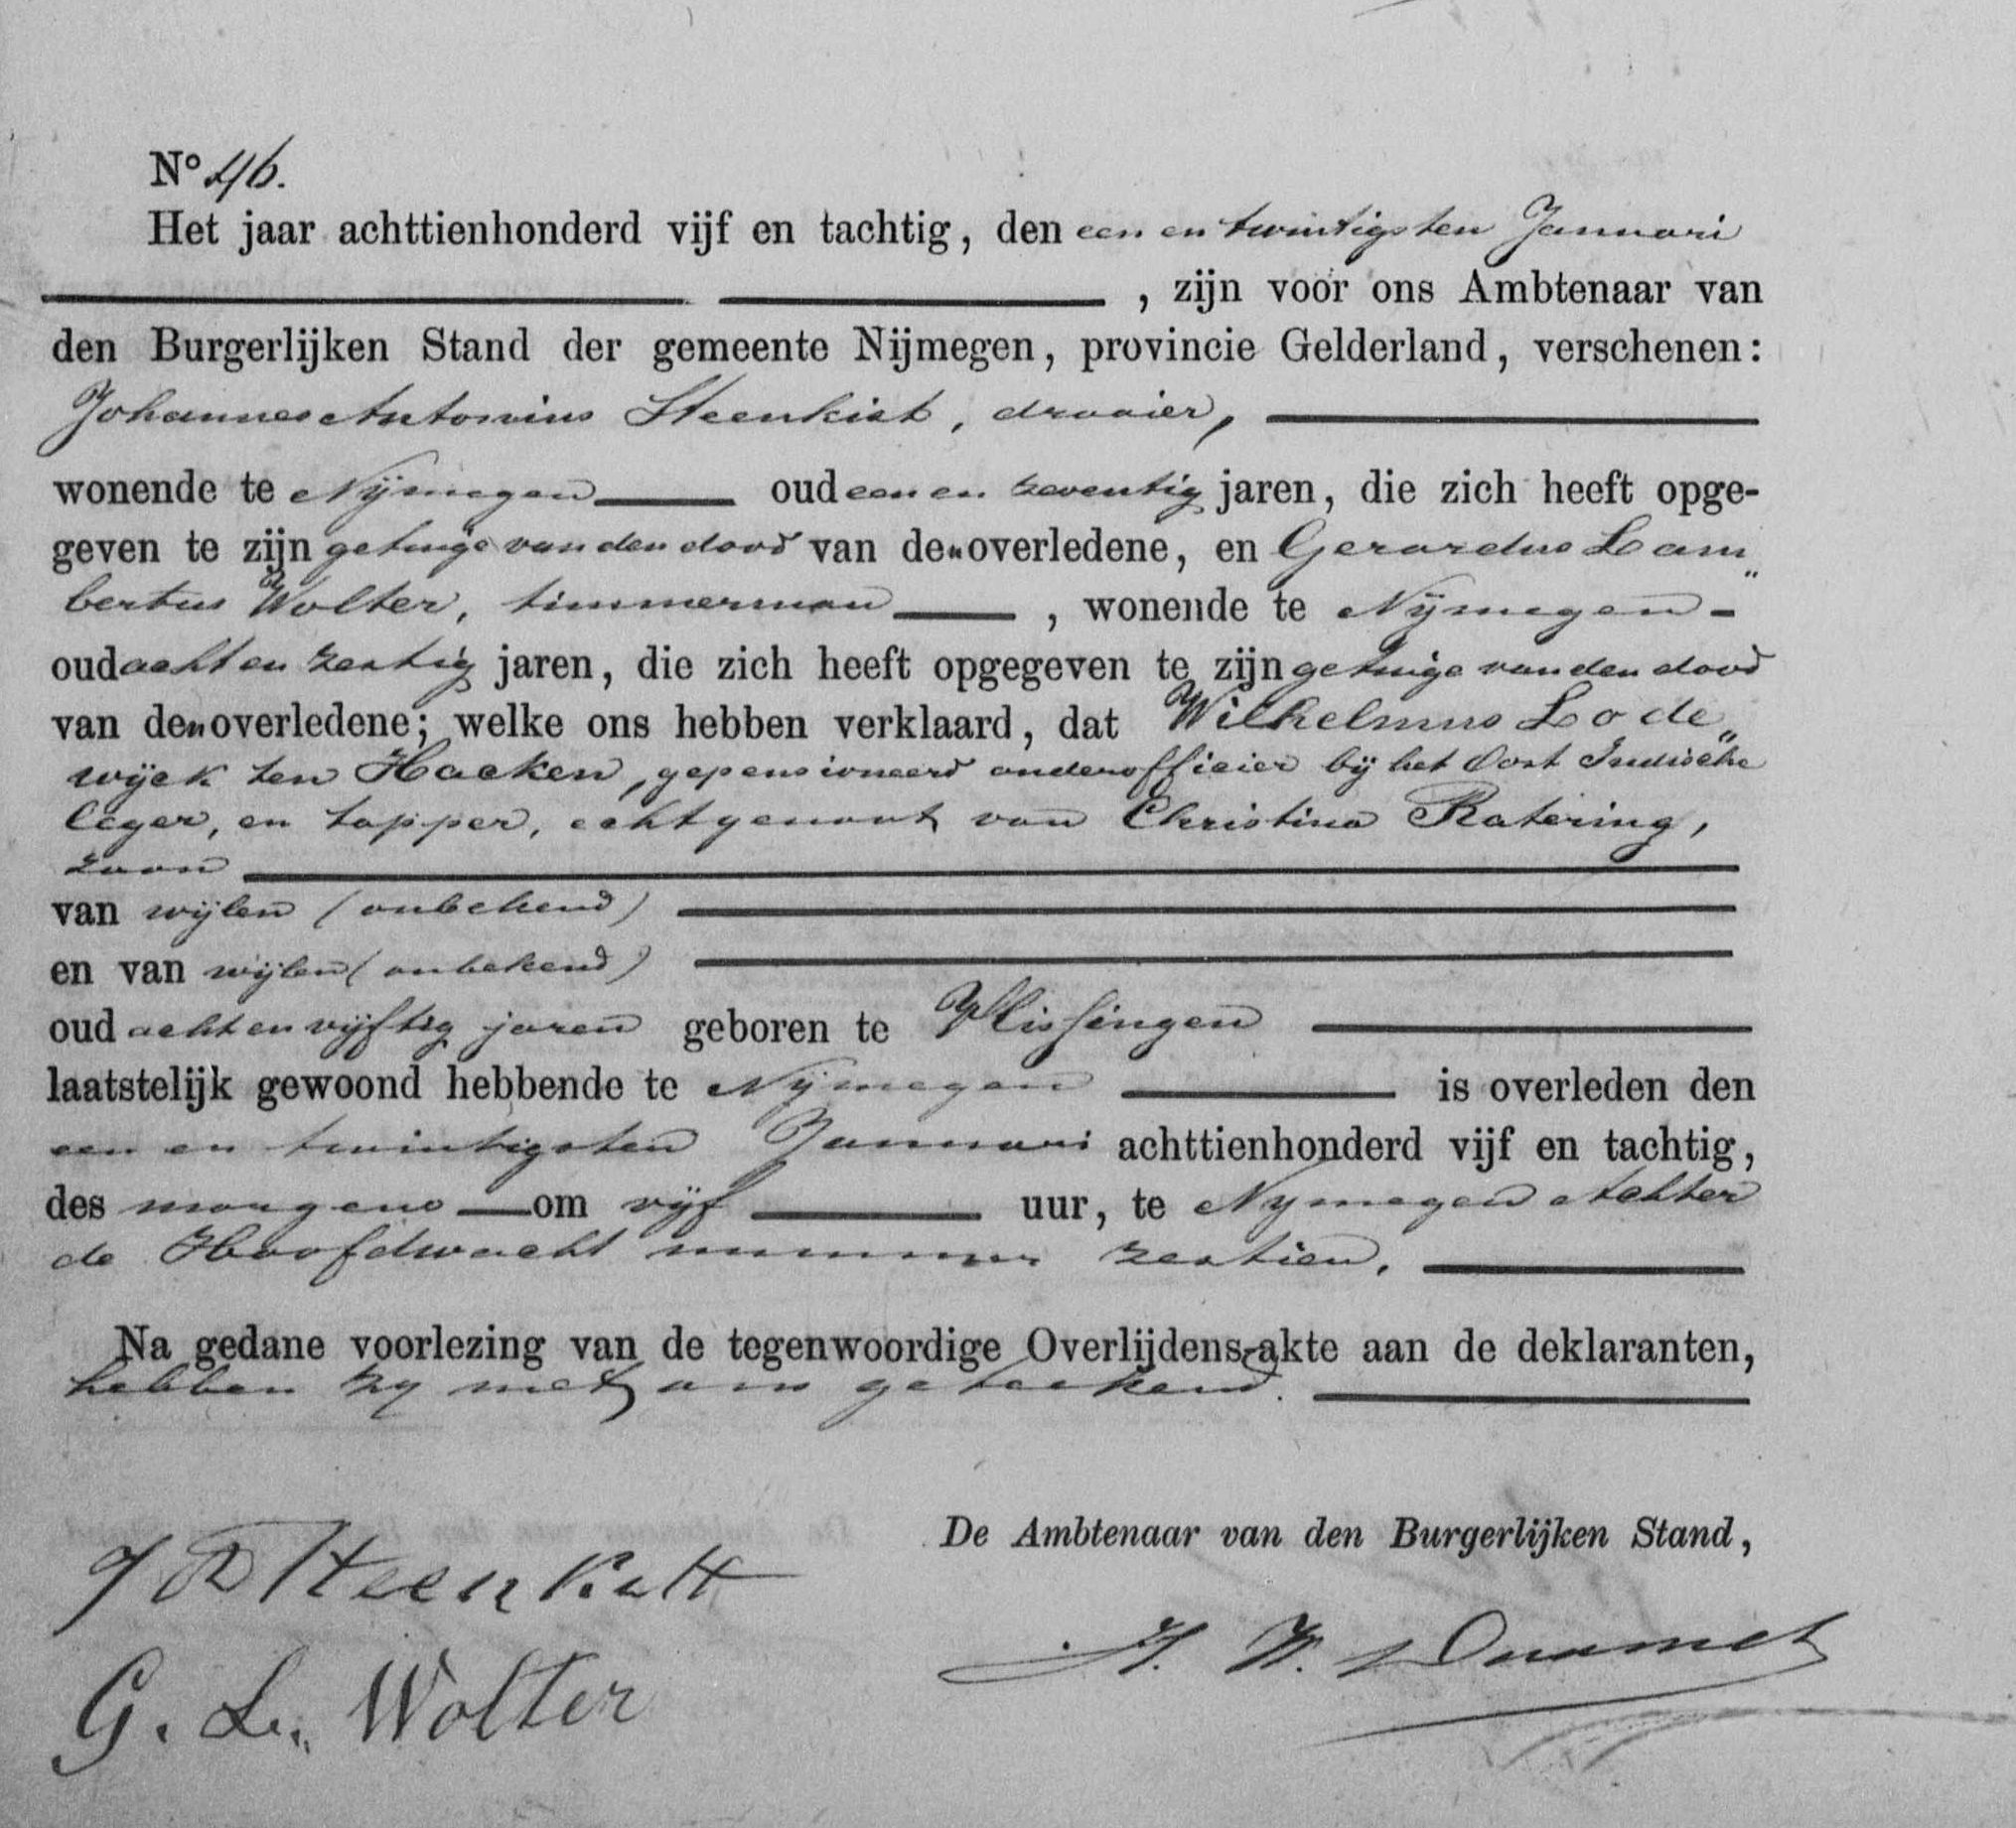 Nº 46.
Het jaar achttienhonderd vijf en tachtig, den een en twintigsten Januari
, zijn voor ons Ambtenaar van
den Burgerlijken Stand der gemeente Nijmegen, provincie Gelderland, verschenen:
Johannes Antonius Steenkist, draaier,
wonende te Nijmegen oud een en zeventig jaren, die zich heeft opge-
geven te zijn getuige van den dood van den overledene, en Gerardus Lam„
bertus Wolter, timmerman , wonende te Nijmegen -
oud acht en zestig jaren, die zich heeft opgegeven te zijn getuige van den dood
van den overledene; welke ons hebben verklaard, dat Wilhelmus Lode„
wijck ten Hacken, gepensioneerd onderofficier bij het Oost Indische
leger, en tapper, echtgenoot van Christina Ratering,
zoon
van wijlen (onbekend)
en van wijlen (onbekend)
oud acht en vijftig jaren geboren te Vlissingen
laatstelijk gewoond hebbende te Nijmegen is overleden den
een en twintigsten Januari achttienhonderd vijf en tachtig,
des morgens om vijf uur, te Nymegen Achter
de Hoofdwacht nummer zestien.
Na gedane voorlezing van de tegenwoordige Overlijdens-akte aan de deklaranten,
hebben zy met ons geteekend.
De Ambtenaar van den Burgerlijken Stand,
G. L. Wolter